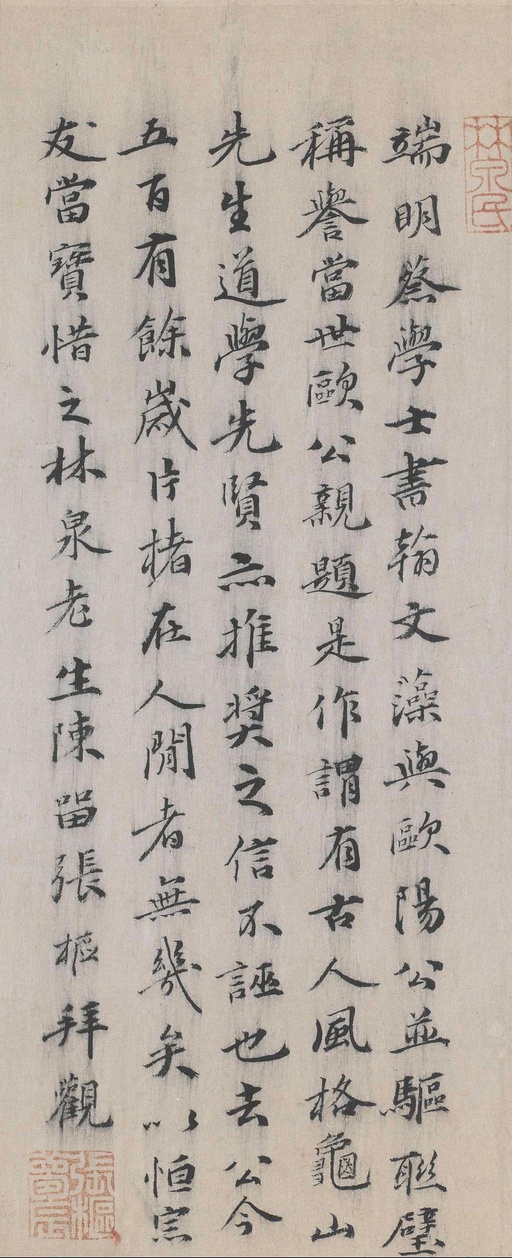 林泉民
端明蔡學士書翰文藻與歐陽公並驅聯璧
稱譽當世歐公親題是作謂有古人風格龜山
先生道學先賢亦推奬之信不誣也去公今
五百有餘歲片楮在人閒者無幾矣以恒宗
友當寶惜之林泉老生陳留張樞拜觀
張樞